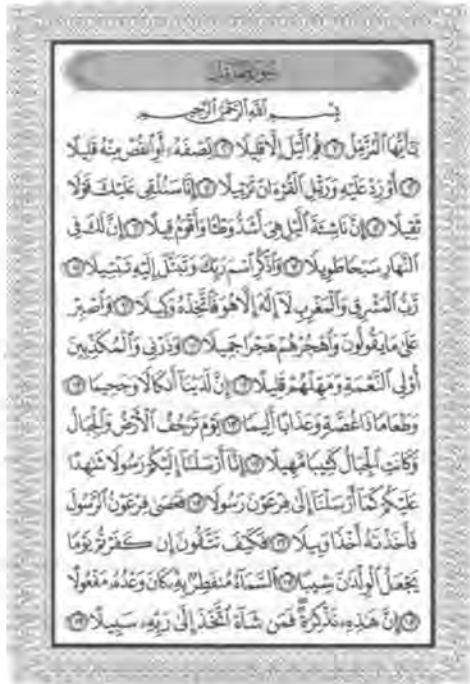 سورة المزمل
بسم الله الرحمن الرحيم
يَٰٓأَيُّهَا ٱلْمُزَّمِّلُ ١ قُمِ ٱلَّيْلَ إِلَّا قَلِيلًا ٢ نِّصْفَهُۥٓ أَوِ ٱنقُصْ مِنْهُ قَلِيلًا
٣ أَوْ زِدْ عَلَيْهِ وَرَتِّلِ ٱلْقُرْءَانَ تَرْتِيلًا ٤ إِنَّا سَنُلْقِى عَلَيْكَ قَوْلًا
ثَقِيلًا ٥ إِنَّ نَاشِئَةَ ٱلَّيْلِ هِىَ أَشَدُّ وَطْـًٔا وَأَقْوَمُ قِيلًا ٦ إِنَّ لَكَ فِى
ٱلنَّهَارِ سَبْحًا طَوِيلًا ٧ وَٱذْكُرِ ٱسْمَ رَبِّكَ وَتَبَتَّلْ إِلَيْهِ تَبْتِيلًا ٨
رَّبُّ ٱلْمَشْرِقِ وَٱلْمَغْرِبِ لَآ إِلَٰهَ إِلَّا هُوَ فَٱتَّخِذْهُ وَكِيلًا ٩ وَٱصْبِرْ
عَلَىٰ مَا يَقُولُونَ وَٱهْجُرْهُمْ هَجْرًا جَمِيلًا ١٠ وَذَرْنِى وَٱلْمُكَذِّبِينَ
أُو۟لِى ٱلنَّعْمَةِ وَمَهِّلْهُمْ قَلِيلًا ١١ إِنَّ لَدَيْنَآ أَنكَالًا وَجَحِيمًا ١٢
وَطَعَامًا ذَا غُصَّةٍ وَعَذَابًا أَلِيمًا ١٣ يَوْمَ تَرْجُفُ ٱلْأَرْضُ وَٱلْجِبَالُ
وَكَانَتِ ٱلْجِبَالُ كَثِيبًا مَّهِيلًا ١٤ إِنَّآ أَرْسَلْنَآ إِلَيْكُمْ رَسُولًا شَٰهِدًا
عَلَيْكُمْ كَمَآ أَرْسَلْنَآ إِلَىٰ فِرْعَوْنَ رَسُولًا ١٥ فَعَصَىٰ فِرْعَوْنُ ٱلرَّسُولَ
فَأَخَذْنَٰهُ أَخْذًا وَبِيلًا ١٦ فَكَيْفَ تَتَّقُونَ إِن كَفَرْتُمْ يَوْمًا
يَجْعَلُ ٱلْوِلْدَٰنَ شِيبًا ١٧ ٱلسَّمَآءُ مُنفَطِرٌۢ بِهِۦ كَانَ وَعْدُهُۥ مَفْعُولًا
١٨ إِنَّ هَٰذِهِۦ تَذْكِرَةٌ فَمَن شَآءَ ٱتَّخَذَ إِلَىٰ رَبِّهِۦ سَبِيلًا ١٩